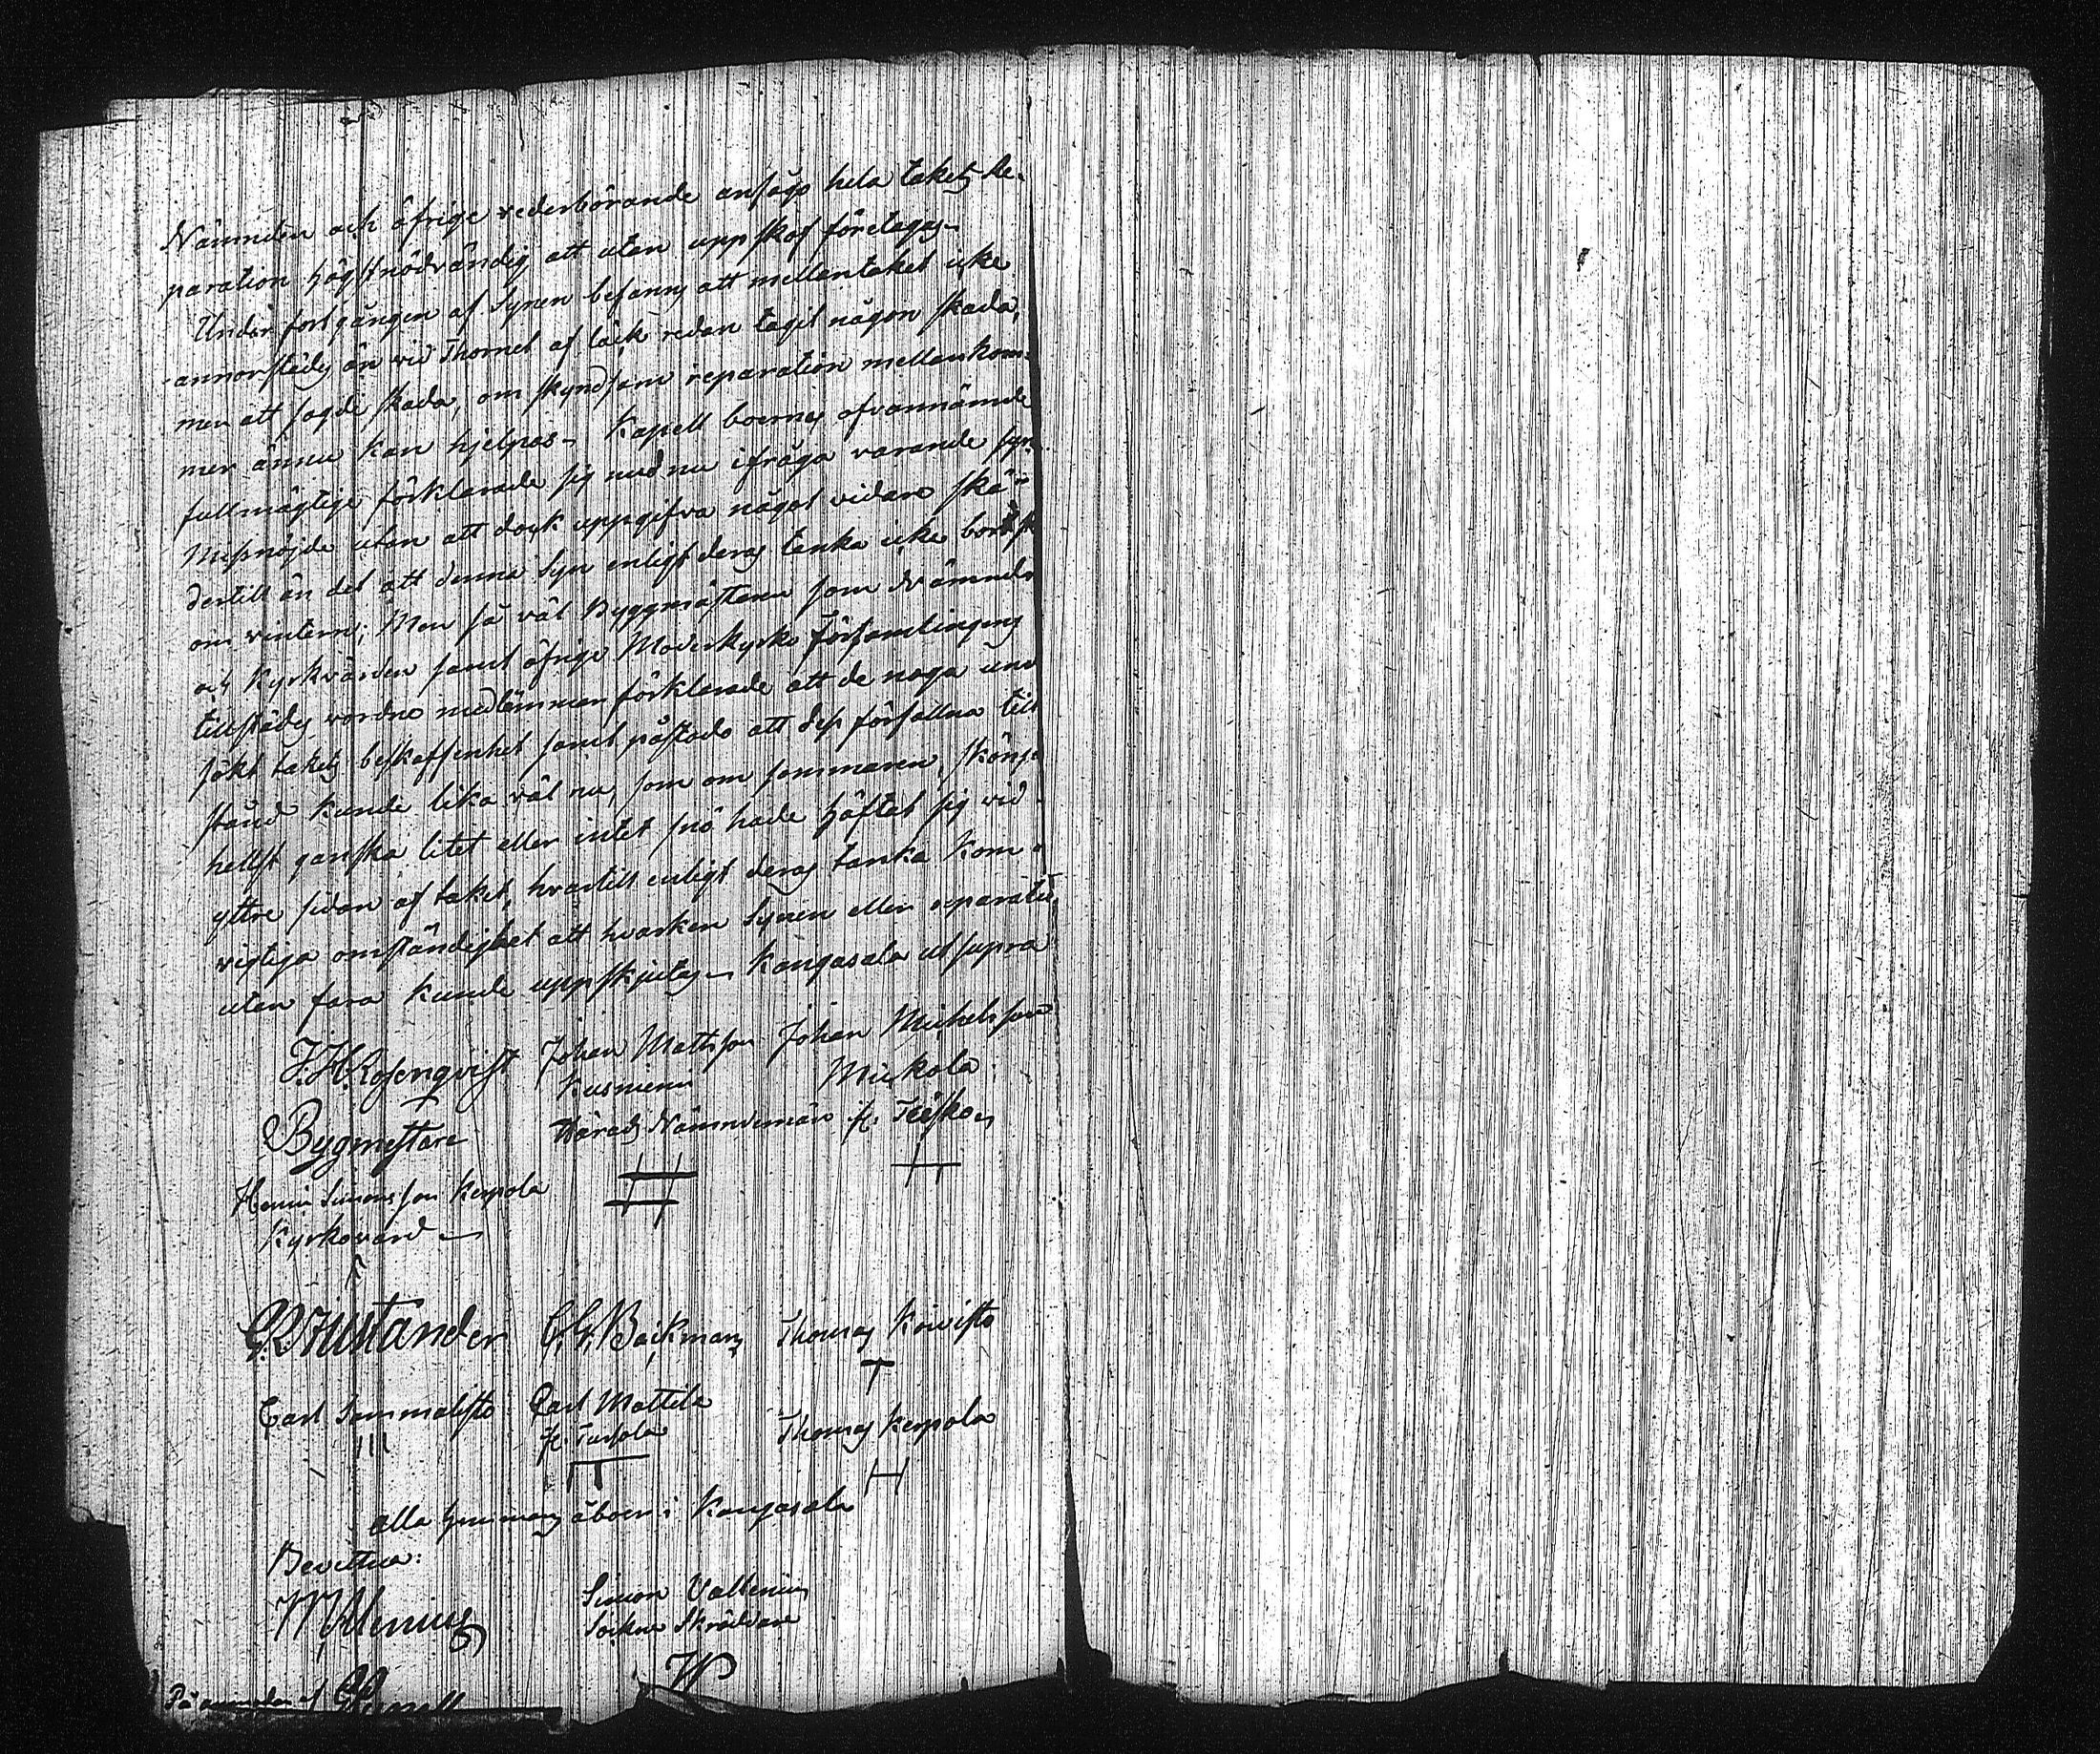 Nämnden och öfrige vederbörande ansågo hela taketz Re-
paration högstnödvändig att utan uppskof företagas.
Under fortgången af Synen befanns att mellantaket icke
annorstädes än vid Thornet af läck redan tagit någon skada,
men att sagde skada, om skyndsam reparation mellankom-
mer ännu kan hjelpas. Kapell boernes ofvannämde
fullmägtige förklarade sig med nu ifråga varande syn
Missnöjde utan att dock uppgifva något vidare skä-
dertill än det att denna Syn enligt deras tanka icke bordt sk
om vintern; Men så väl Byggmästaren som Nämnde
och Kyrkvärden samt öfrige Moderkyrko församlingens
tillstädes vordne medlemmar förklarade att de noga und
sökt taketz beskaffenhet samt påstodo att dess förfallna till
stånd kunde lika väl nu, som om sommaren, skönjas
hellst ganska litet eller intet snö hade häftat sig vid
yttre sidan af taket, hvartill enligt deras tanka kom
vigtiga omständighet att hvarken Synen eller reparation
utan fara kunde uppskjutas. Kangasala ut supra
J. H. Rosenqvist Johan Mattsson Johan Michelsson
Kusniemi Mickola
Bygmestare Härads Nämndemän fr. Teisko
Henric Simonsson Kerpola
Kyrkovärd
G. Wiustander C. G. Bäckman Thomas Koivisto
Carl Sammalisto Carl Mattila
fr. Tursola Thomas Kerpola
alla hemmans åboer i Kangasala
Bevittna:
M Alenius Simon Vallenius
Sockne Skräddare
På anmodan af